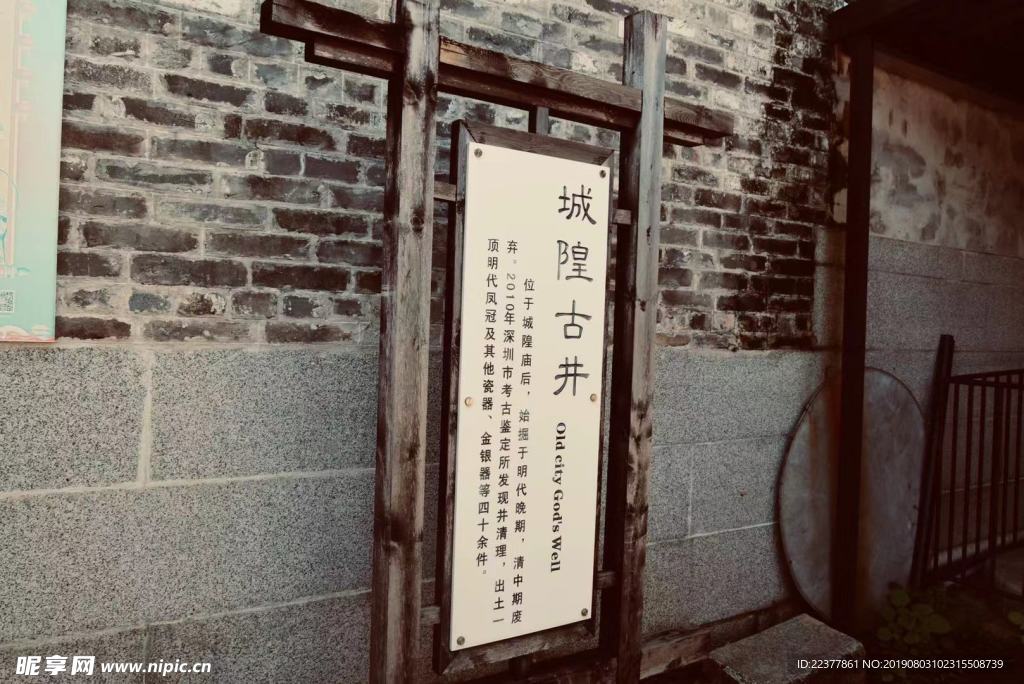 城隍古井
Old city God's Well
位于城隍庙后，始掘于明代晚期，清中期废
弃。2010年深圳市考古鉴定所发现并清理，出土一
顶明代凤冠及其他瓷器、金银器等四十余件。
昵享网 www.nipic.cn
ID:22377861 NO:20190803102315508739